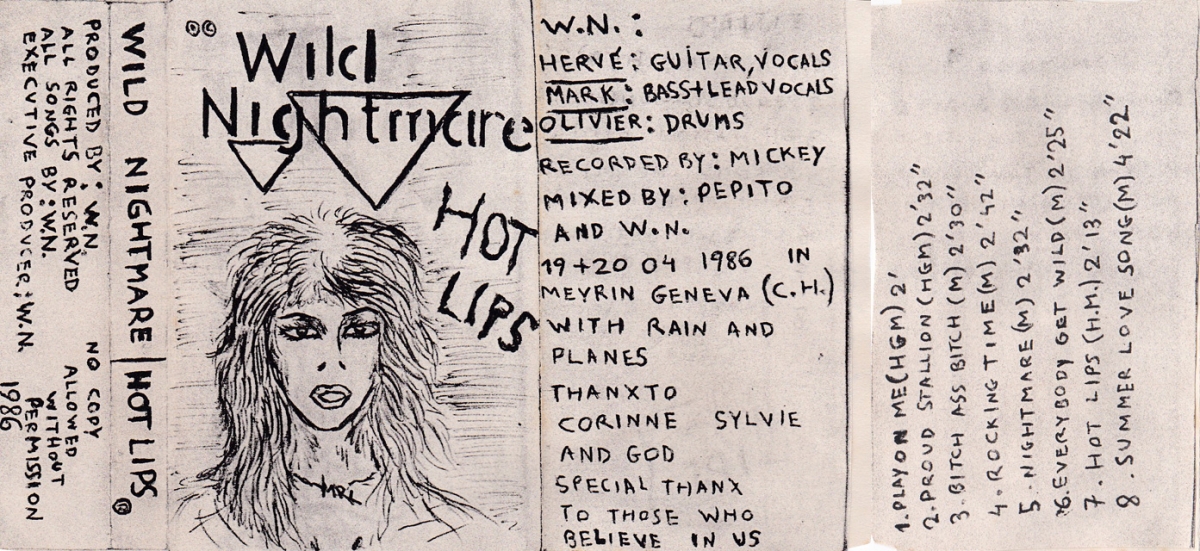 PRODUCED BY: W.N. NO COPY
ALL RIGHTS RESERVED ALLOWED
ALL SONGS BY: W.N. WITHOUT
EXECUTIVE PRODUCER: W.N. PERMISSION
1986
WILD NIGHTMARE | HOT LIPS ©
Wild
Nightmare
HOT
LIPS
W.N.:
HERVÉ: GUITAR, VOCALS
MARK: BASS+LEAD VOCALS
OLIVIER: DRUMS
RECORDED BY: MICKEY
MIXED BY: PEPITO
AND W.N.
19+20 04 1986 IN
MEYRIN GENEVA (C.H.)
WITH RAIN AND
PLANES
THANX TO
CORINNE SYLVIE
AND GOD
SPECIAL THANX
TO THOSE WHO
BELIEVE IN US
1. PLAY ON ME (HGM) 2'
2. PROUD STALLION (HGM) 2'32"
3. BITCH ASS BITCH (M) 2'30"
4. ROCKING TIME (M) 2'42"
5. NIGHTMARE (M) 2'32"
6. EVERYBODY GET WILD (M) 2'25"
7. HOT LIPS (H.M.) 2'13"
8. SUMMER LOVE SONG (M) 4'22"